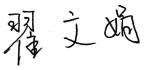 翟文娟